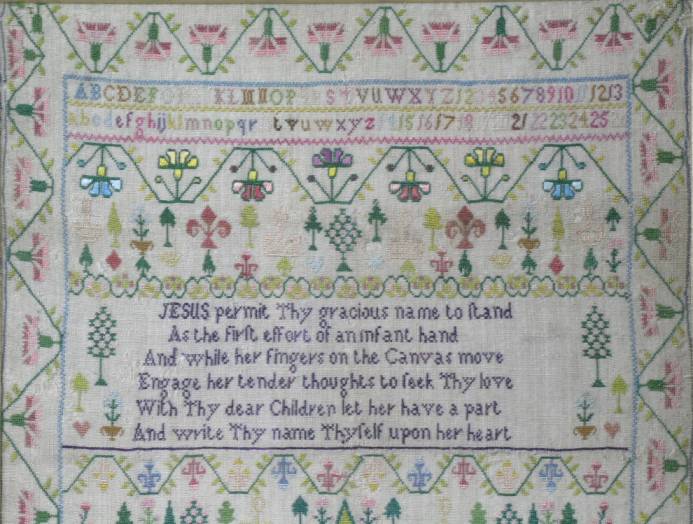 ABCDEF KLMNOP S VUWXYZ12 5678910 1213
abcdefghijklmnopqr tvuwxyz 15161718 2122232425
JESUS permit Thy gracious name to ſtand
As the firſt effort of an infant hand
And while her fingers on the Canvas move
Engage her tender thoughts to ſeek Thy love
With Thy dear Children let her have a part
And write Thy name Thyſelf upon her heart